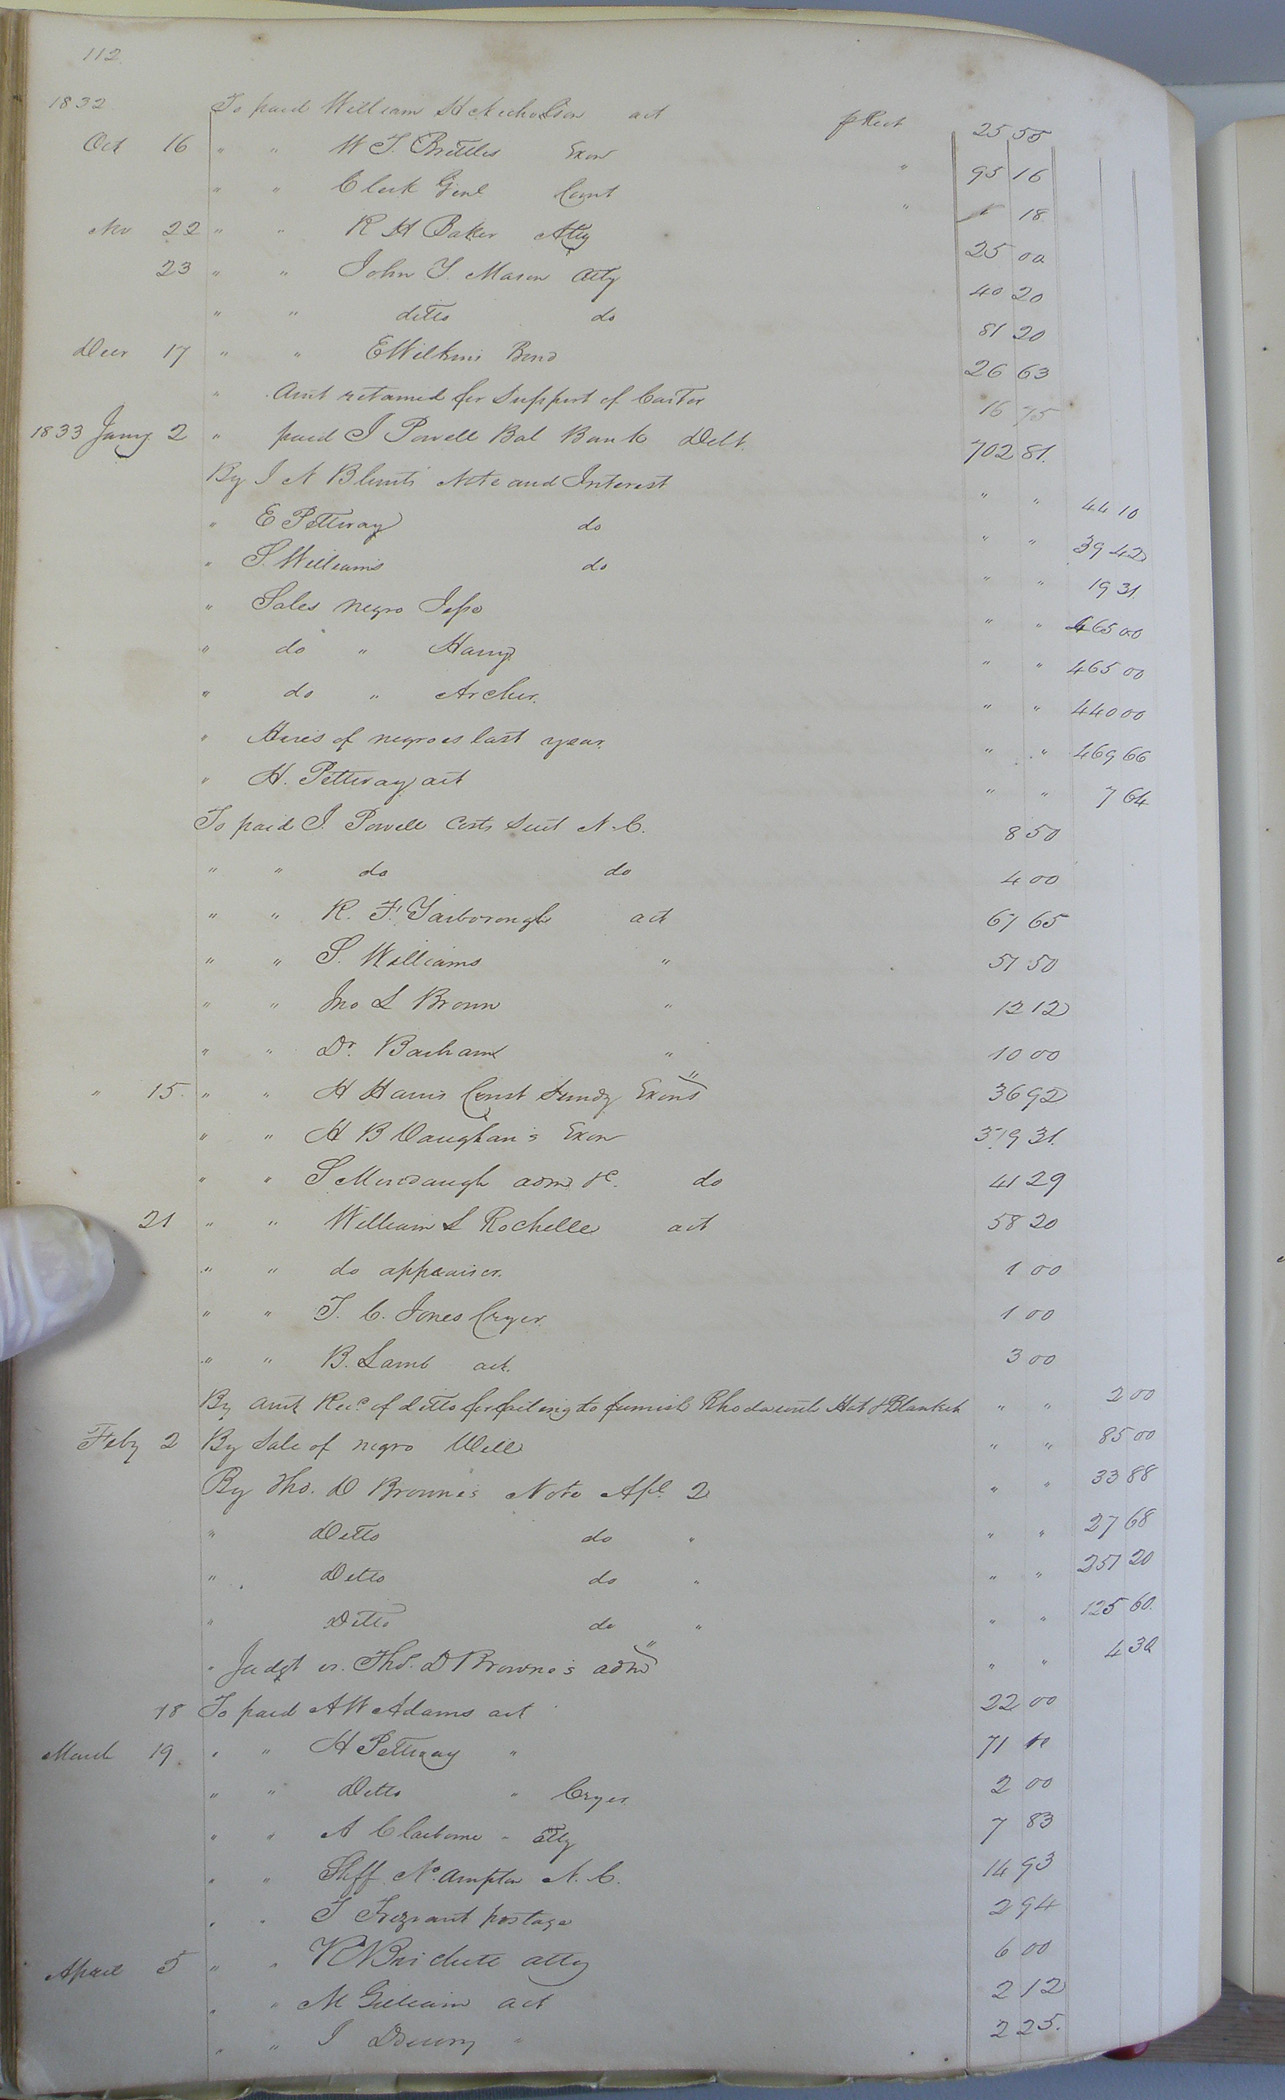 112.
1832 To paid William H Nicholson act p Rect 25 55
Oct 16 " " W T. Brittles Exon " 95 16
" " Clerk Genl Court " 18
Nov 22 " " R H Baker Atty 25 00
23 " " John Y. Mason Atty 40 20
" " ditto do 81 20
Decr 17 " " E Wilkins Bond 26 63
" Amt retained for Support of Castor 16 75
1833 Jany 2 " paid J Powell Bal Bank Debt. 702 81.
By J N Blunts Note and Interest " " 44 10
" E Pettway do " " 39 42
" S. Williams do " " 19 31.
" Sales negro Jepe " " 665 00
" do " Harry " " 465 00
" do " Archer. " " 440 00
" Hires of negroes last year. " " 469 66
" H. Pettway act " " 7 64
To paid J. Powell Costs Suit N. C. 8 50
" " do do 4 00
" " R. F. Yarborough act 67 65
" " S. Williams " 51 50
" " Jno L Brown " 12 12
" " Dr. Barham " 10 00
" 15. " " H Harris Const Sundy Exons 36 92
" " H B Vaughan's Exon 319 31.
" " S Murdaugh adm &c. do 41 29
21 " " William L Rochelle act 58 20
" " do appraiser. 1 00
" " T. C. Jones Cryer. 1 00
" " B. Lamb act. 3 00
By amt Recd of ditto for failing to furnish Rhoda with Hat & Blanket " " 2 00
Feby 2 By Sale of negro Will " " 85 00
By Tho. D Browne's Note Apl. 2 " " 33 88
" Ditto do " " " 27 68
" Ditto do " " " 251 20
" Ditto do " " " 125 60.
" Judgt vs. Tho. D Browne's adm " " 4 30
18 To paid A W Adams act 22 00
March 19 " " H Pettway " 71 10
" " Ditto " Cryer 2 00
" " A Claiborne " atty 7 83
" " Shff No. ampton N. C. 14 93
" " T Trezvant postage 2 94
April 5 " " atty 6 00
" " M Gilliam act 2 12
" " J Drewry " 2 25.